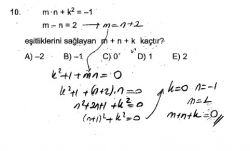 10. m·n + k² = –1
m – n = 2 → m = n+2
eşitliklerini sağlayan m + n + k kaçtır?
A) –2 B) –1 C) 0 D) 1 E) 2
k²+1+mn = 0
k²+1+(n+2)·n = 0
n²+2n+1+k² = 0
(n+1)²+k² = 0
k=0 n=-1
m=1
m+n+k=0